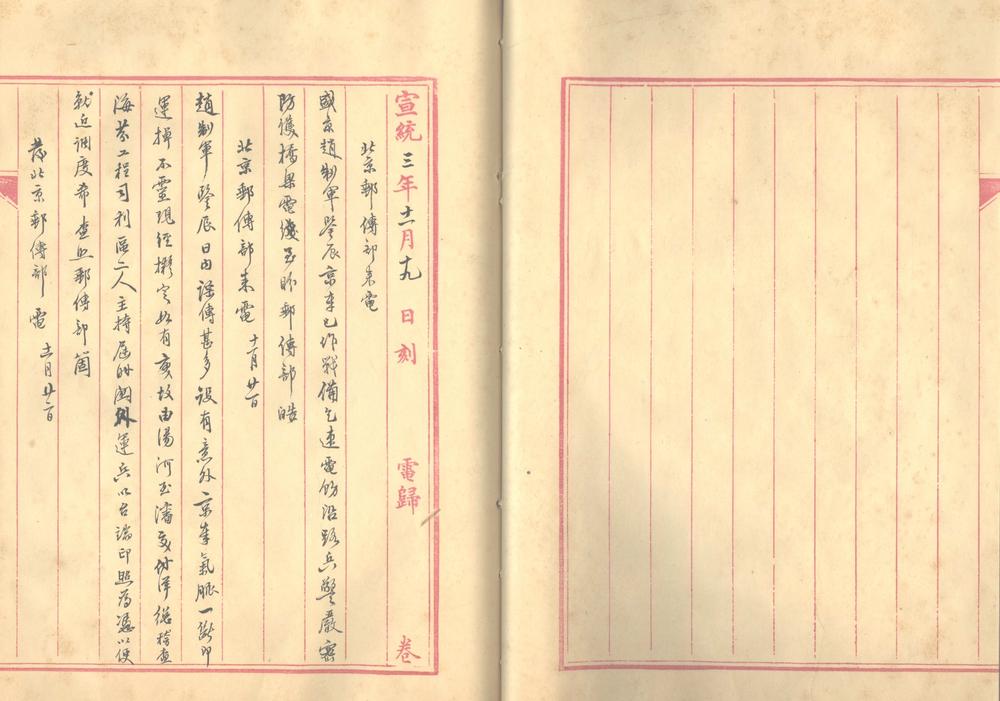 宣統三年十一月十九日刻 電歸 卷
北京郵傳部来電
盛京趙制軍鑒辰京奉已作戰備乞速電飭沿路兵警嚴密
防護橋梁電綫至盼郵傳部皓
北京郵傳部来電 十一月廿一日
趙制軍鑒辰日內謡傳甚多設有意外京奉氣脈一斷即
運掉不靈現經擬定如有變故由湯河至瀋交洋總稽查
海芬工程司利區二人主持屆時關外運兵以台端印照為憑以便
就近調度希查照郵傳部箇
發北京郵傳部電 十一月廿二日